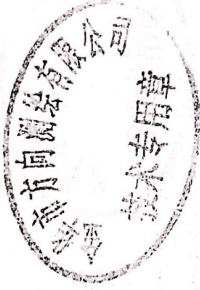 市方圆测绘有限公司
技术专用章